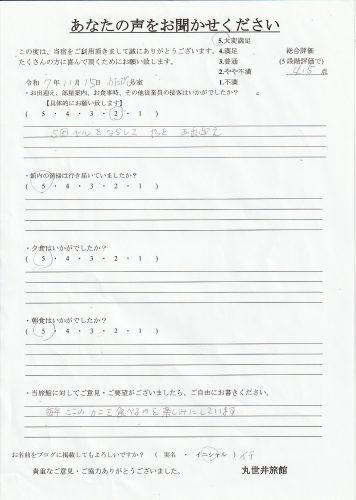 あなたの声をお聞かせください
この度は、当宿をご利用頂きまして誠にありがとうございます。
たくさんの方に喜んで頂くためにお願い致します。
5.大変満足
4.満足
3.普通
2.やや不満
1.不満
総合評価
(5段階評価で)
4.5 点
令和 7年 11月 15日 号室
・お出迎え、部屋案内、お食事時、その他従業員の接客はいかがでしたか？
【具体的にお願い致します】
( 5 ・ 4 ・ 3 ・ 2 ・ 1 )
5回ベルをならして やっと お出迎え
・館内の清掃は行き届いていましたか？
( 5 ・ 4 ・ 3 ・ 2 ・ 1 )
・夕食はいかがでしたか？
( 5 ・ 4 ・ 3 ・ 2 ・ 1 )
・朝食はいかがでしたか？
( 5 ・ 4 ・ 3 ・ 2 ・ 1 )
・当旅館に対してご意見・ご要望がございましたら、ご自由にお書きください。
毎年 ここの カニを食べるのを楽しみにしています
お名前をブログに掲載してもよろしいですか？ ( 実名 ・ イニシャル ) イテ
貴重なご意見・ご協力ありがとうございました。
丸世井旅館